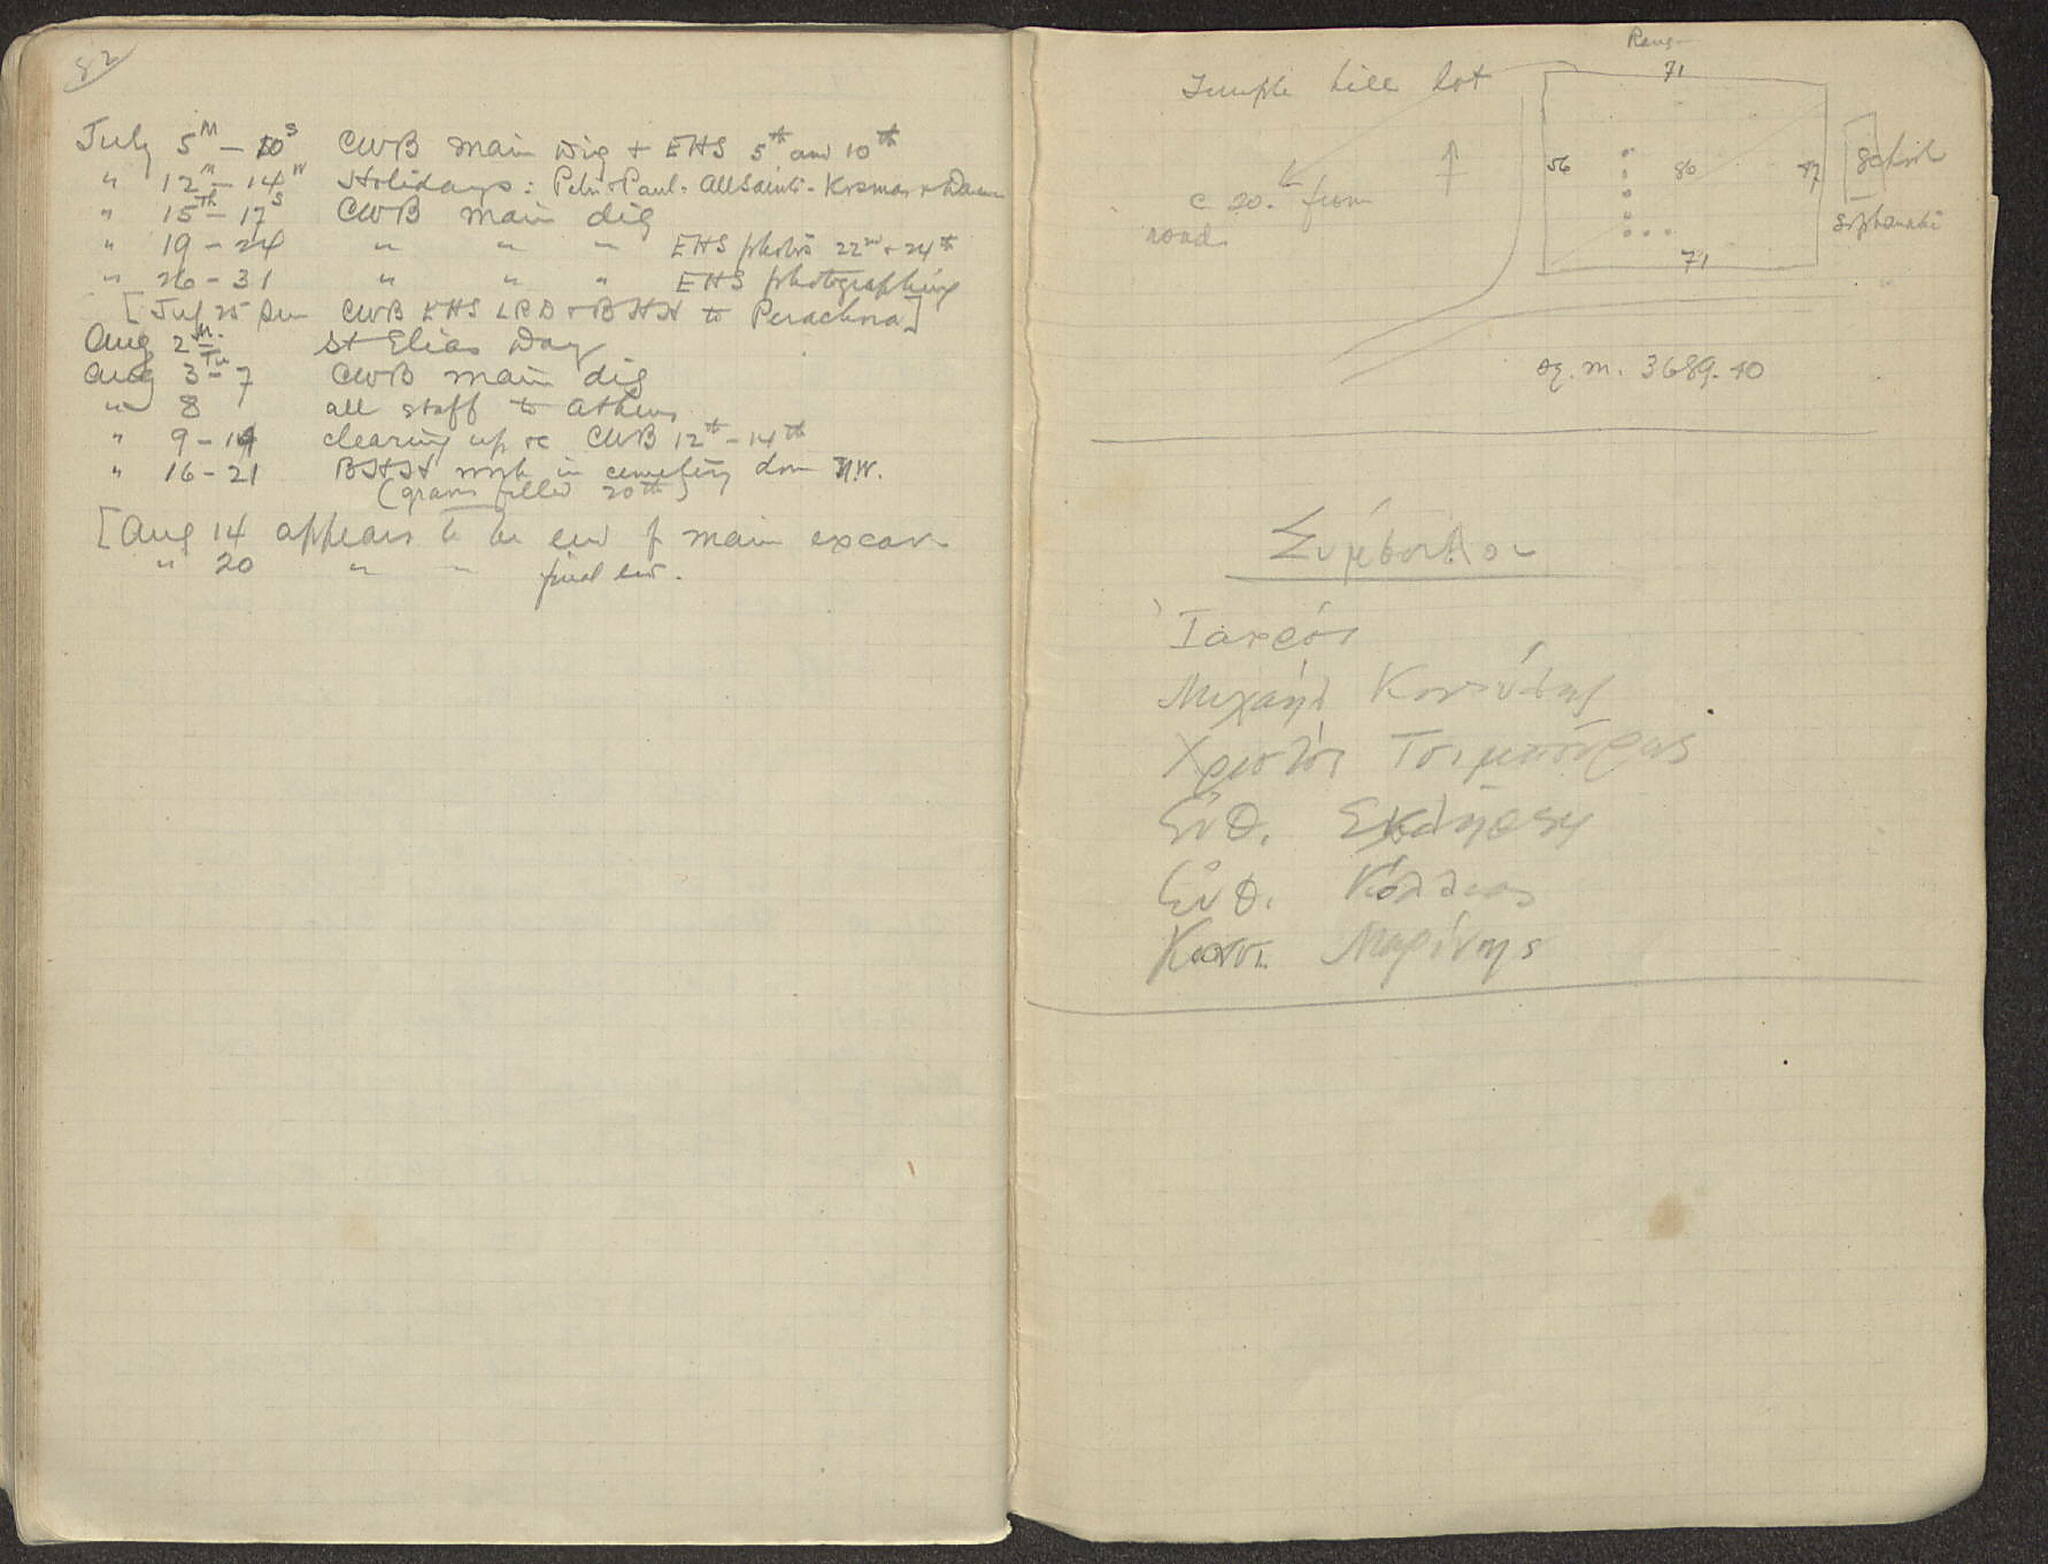 82
July 5 M – 10 S CWB main dig + EHS 5th and 10th
" 12 M – 14 W Holidays: Peter + Paul - All Saints - Kosmas + Damian
" 15 Th – 17 S CWB main dig
" 19 – 24 " " " EHS photos 22nd + 24th
" 26 – 31 " " " EHS photographing
[July 25 Sun CWB EHS LRD + BHH to Perachora]
Aug 2 M. St Elias Day
Aug 3 Tu – 7 CWB main dig
" 8 all staff to Athens
" 9 – 14 clearing up etc CWB 12th – 14th
" 16 – 21 BHH work in cemetery down N.W.
(graves filled 20th)
[Aug 14 appears to be end of main excav.
" 20 " " final end.
Temple hill lot
71
56
80
87
School
c 20. from
road
71
sq. m. 3689.40
Σύμβουλοι
Ἰατρός
Μιχαήλ
Χρῖστος Τσιμπούρας
Εὐθ.
Εὐθ. Κόλλιας
Κωνστ. Μαρίνης